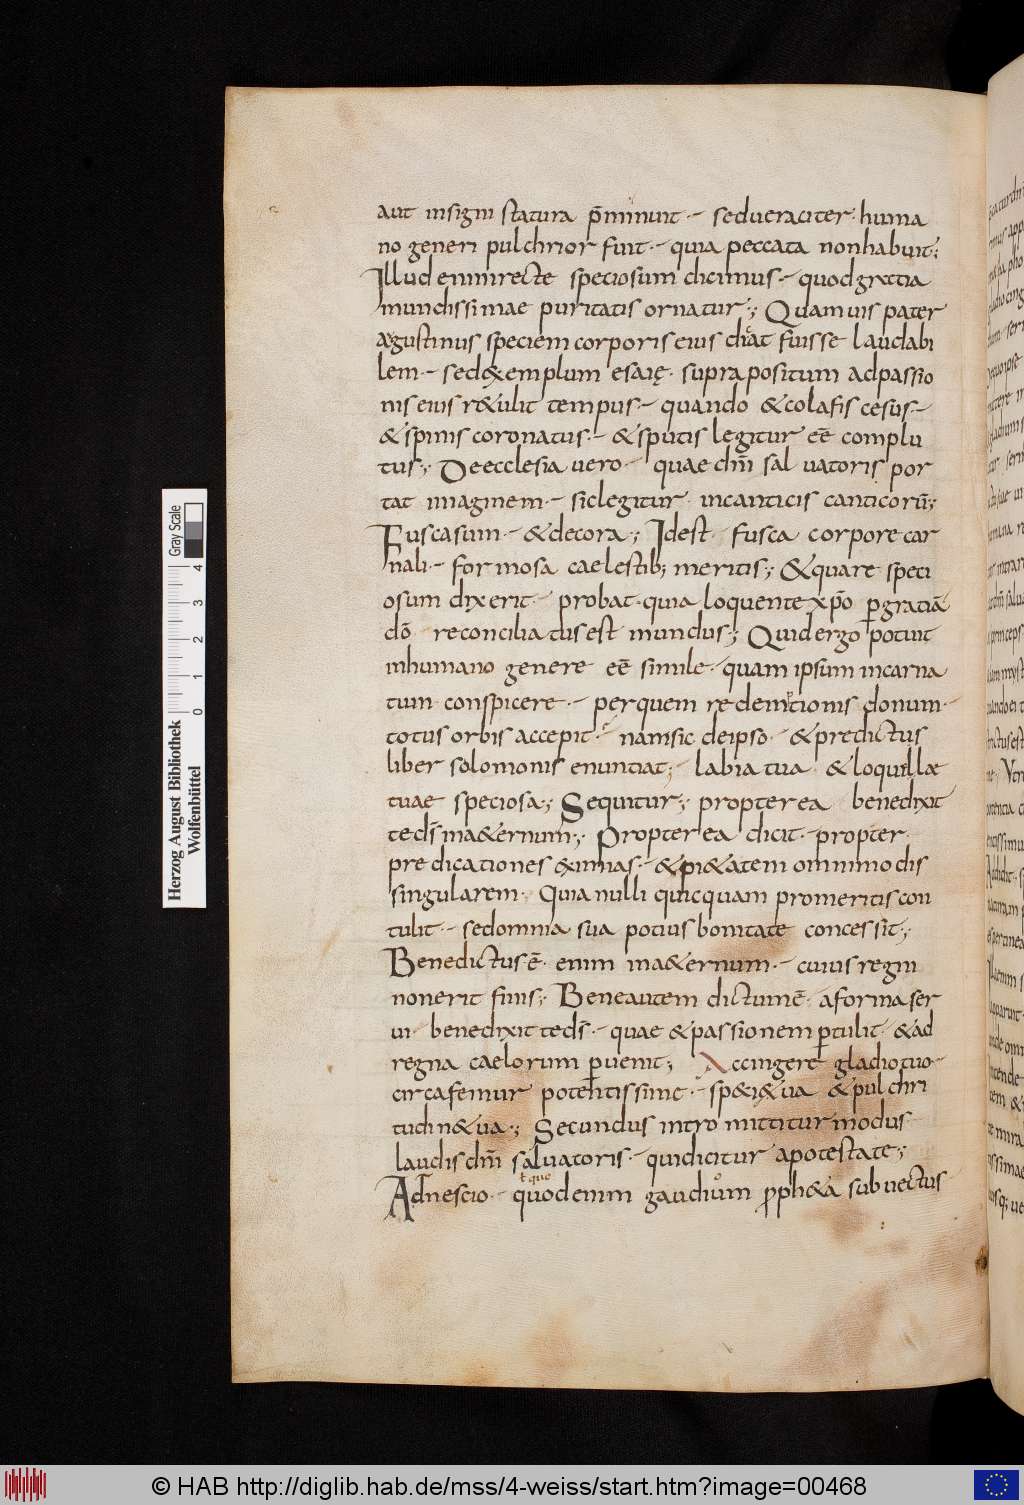 aut insigni statura p̄minuit · sed ueraciter huma
no generi pulchrior fuit · quia peccata non habuit ;
Illud enim recte speciosum dicimus · quod gratia
mundissimae puritatis ornatur ; Quamuis pater
agustinus speciem corporis eius dicat fuisse laudabi
lem · sed & exemplum esaię · supra positum ad passio
nis eius r&ulit tempus · quando & colafis cesus ·
& spinis coronatus · & sputis legitur eē complu
tus ; De ecclesia uero · quae dn̄i saluatoris por
tat imaginem · sic legitur in canticis canticorū ;
Fusca sum · & decora ; Idest · fusca corpore car
nali · formosa caelestib; meritis ; & quare speci
osum dixerit · probat · quia loquente xp̄o p gratiā
dō reconciliatus est mundus ; Quid ergo potuit
in humano genere eē simile · quam ipsum incarna
tum conspicere · per quem redemtionis donum ·
totus orbis accepit · nam sic de ipso · & predictus
liber solomonis enuntiat ; labia tua & loquillae
tuae speciosa ; Sequitur ; propterea benedixit
te ds̄ in a&ernum ; Propterea dicit · propter
predicationes eximias · & pi&atem omnimodis
singularem · Quia nulli quicquam pro meritis con
tulit · sed omnia sua potius bonitate concessit ;
Benedictus ē enim in a&ernum · cuius regni
non erit finis ; Bene autem dictum ē a forma ser
ui · benedixit te ds̄ · quae & passionem ptulit · & ad
regna caelorum puenit ; Accingere gladio tuo ·
circa femur potentissime · sp&i&ua & pulchri
tudin&ua ; Secundus intromittitur modus
laudis dn̄i saluatoris · qui dicitur a potestate ;
ł quo
Ad nescio · quod enim gaudium proph&a subuectus
Herzog August Bibliothek
Wolfenbüttel
0 1 2 3 4
Gray Scale
© HAB http://diglib.hab.de/mss/4-weiss/start.htm?image=00468